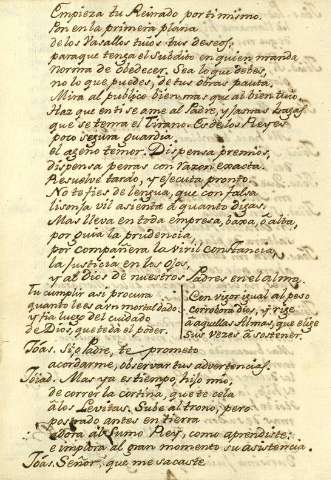 Empieza tu Reinado por ti mismo.
Pon en la primera plana
de los Vasallos tuios tus deseos,
para que tenga el Subdito en quien manda
Norma de obedecer. Sea lo que debes,
no lo que puedes, de tus obras pauta.
Mira al publico bien mas que al bien tuio.
Haz que en ti se ame al Padre, y jamas
que se tema el Tirano. Es de los Reyes
poco segura guardia
el ageno temor. Dispensa premios,
dispensa penas con razon exacta.
Resuelve tardo, y executa pronto.
No te fies de lengua, que con falsa
lisonja vil asienta á quanto digas.
Mas lleva en toda empresa, baxa, ó alta,
por guia la prudencia,
por compañera la viril constancia,
la Justicia en los ojos,
y al Dios de nuestros Padres en el alma.
Tu cumplir asi procura
quanto le es a un mortal dado:
y fia luego del cuidado
de Dios, que te dá el poder.
Con vigor igual al peso
corrobora Dios, y rige
á aquellas Almas, que elige
sus vezes á sostener.
Joas. Si, o Padre, te prometo
acordarme, observar tus advertencias.
Joiad. Mas ya es tiempo, hijo mio,
de correr la cortina, que te cela
á los Levitas. Sube al trono; pero
postrado antes en tierra
Adora al sumo Rey, como aprendiste:
e implora al gran momento su asistencia.
Joas. Señor, que me sacaste